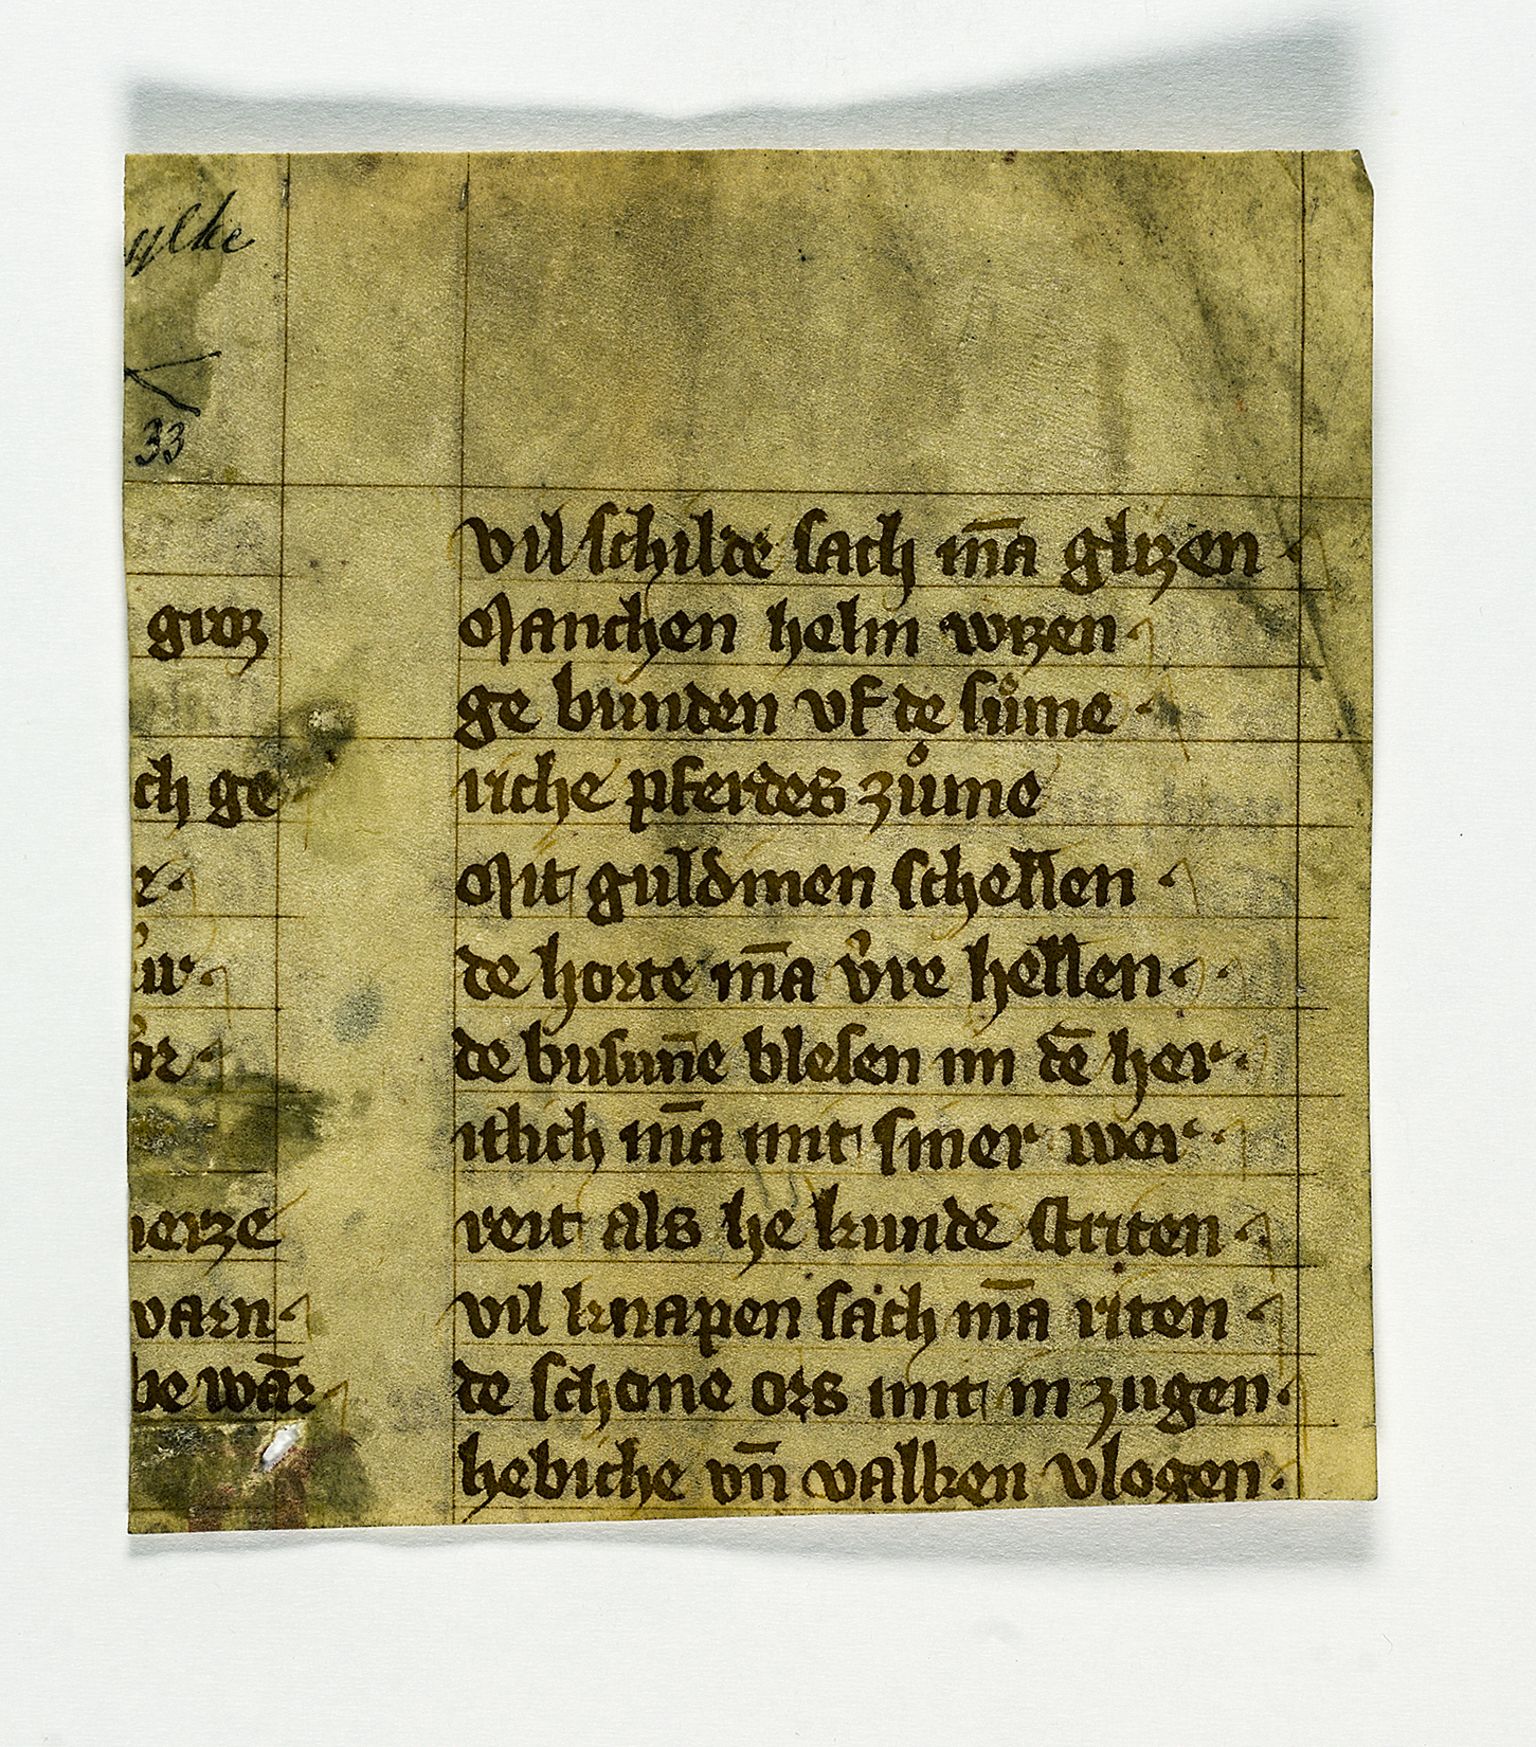 ylke
33
groz
ch ge
e·
ur·
or·
herze
varn·
be wār
vil schilde sach m̄a glizen·
Manchen helm wizen·
ge bunden vf de suͦme·
riche pferdes zuͦme
Mit guldinen schellen·
de horte m̄a v̓re hellen·
de busun̄e blesen im dē her·
itlich m̄a mit siner wer·
reit als he kunde striten·
vil knapen sach m̄a riten·
de schone ors mit in zugen·
hebiche vn̄ valken vlogen·